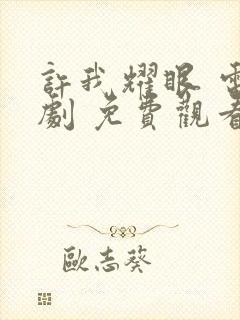 許我耀眼 電
劇 免費觀看
歐志葵